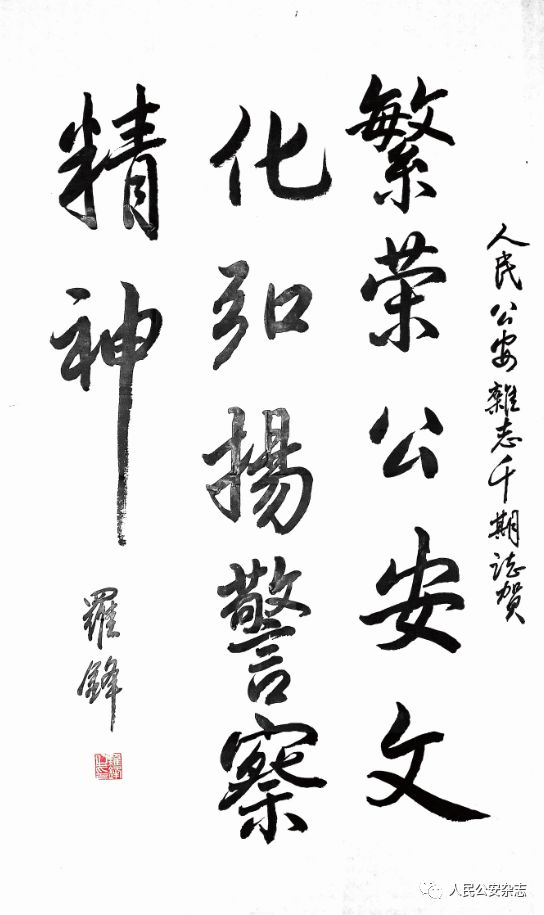 人民公安雜志千期誌賀
繁荣公安文
化弘揚警察
精神
羅鋒
人民公安杂志